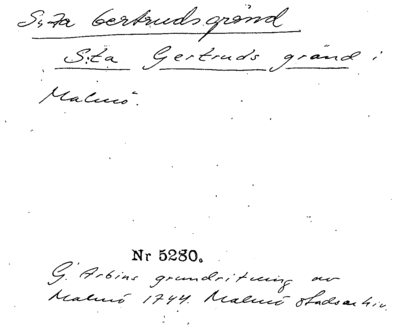 S:ta Gertrudsgränd
S:ta Gertruds gränd i
Malmö.
Nr 5280.
G. Arbins grundritning av
Malmö 1744. Malmö stadsarkiv.